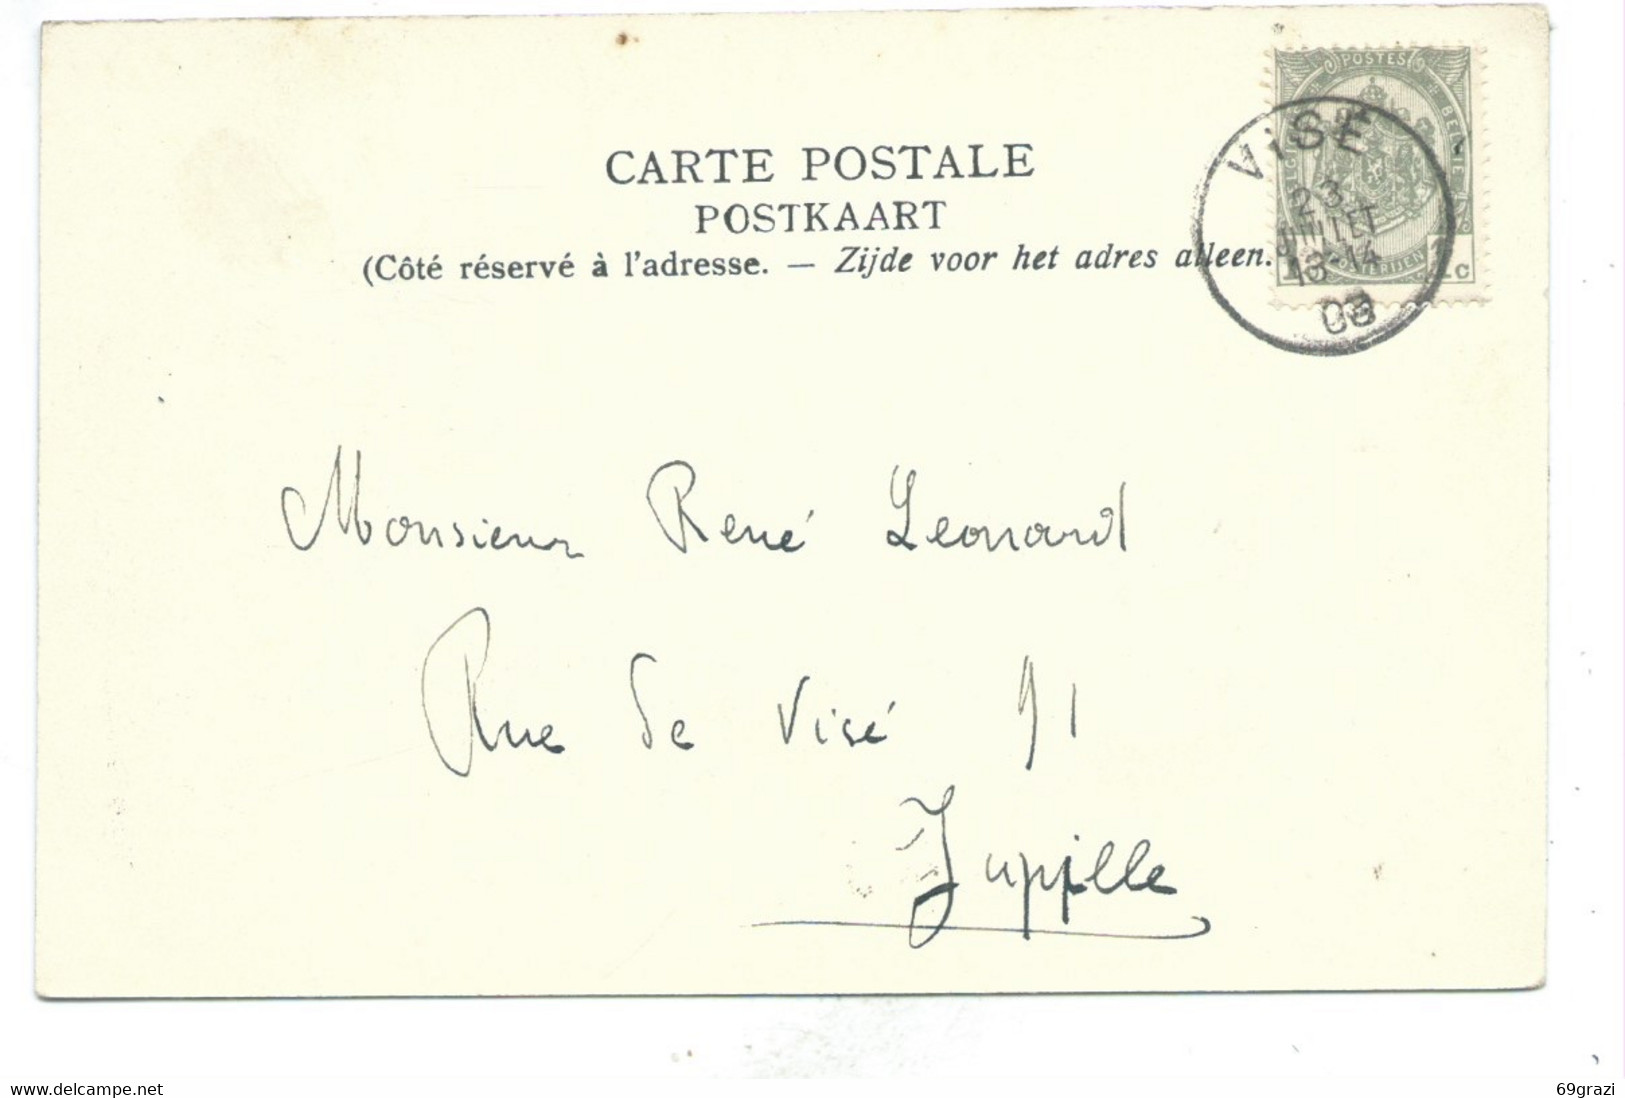 CARTE POSTALE
POSTKAART
(Côté réservé à l'adresse. — Zijde voor het adres alleen.)
POSTES
BELGIE
POSTERIJEN
1 C
VISÉ
23
JUILLET
13-14
03
Monsieur René Leonard
Rue de Visé 91
Jupille
www.delcampe.net
69grazi